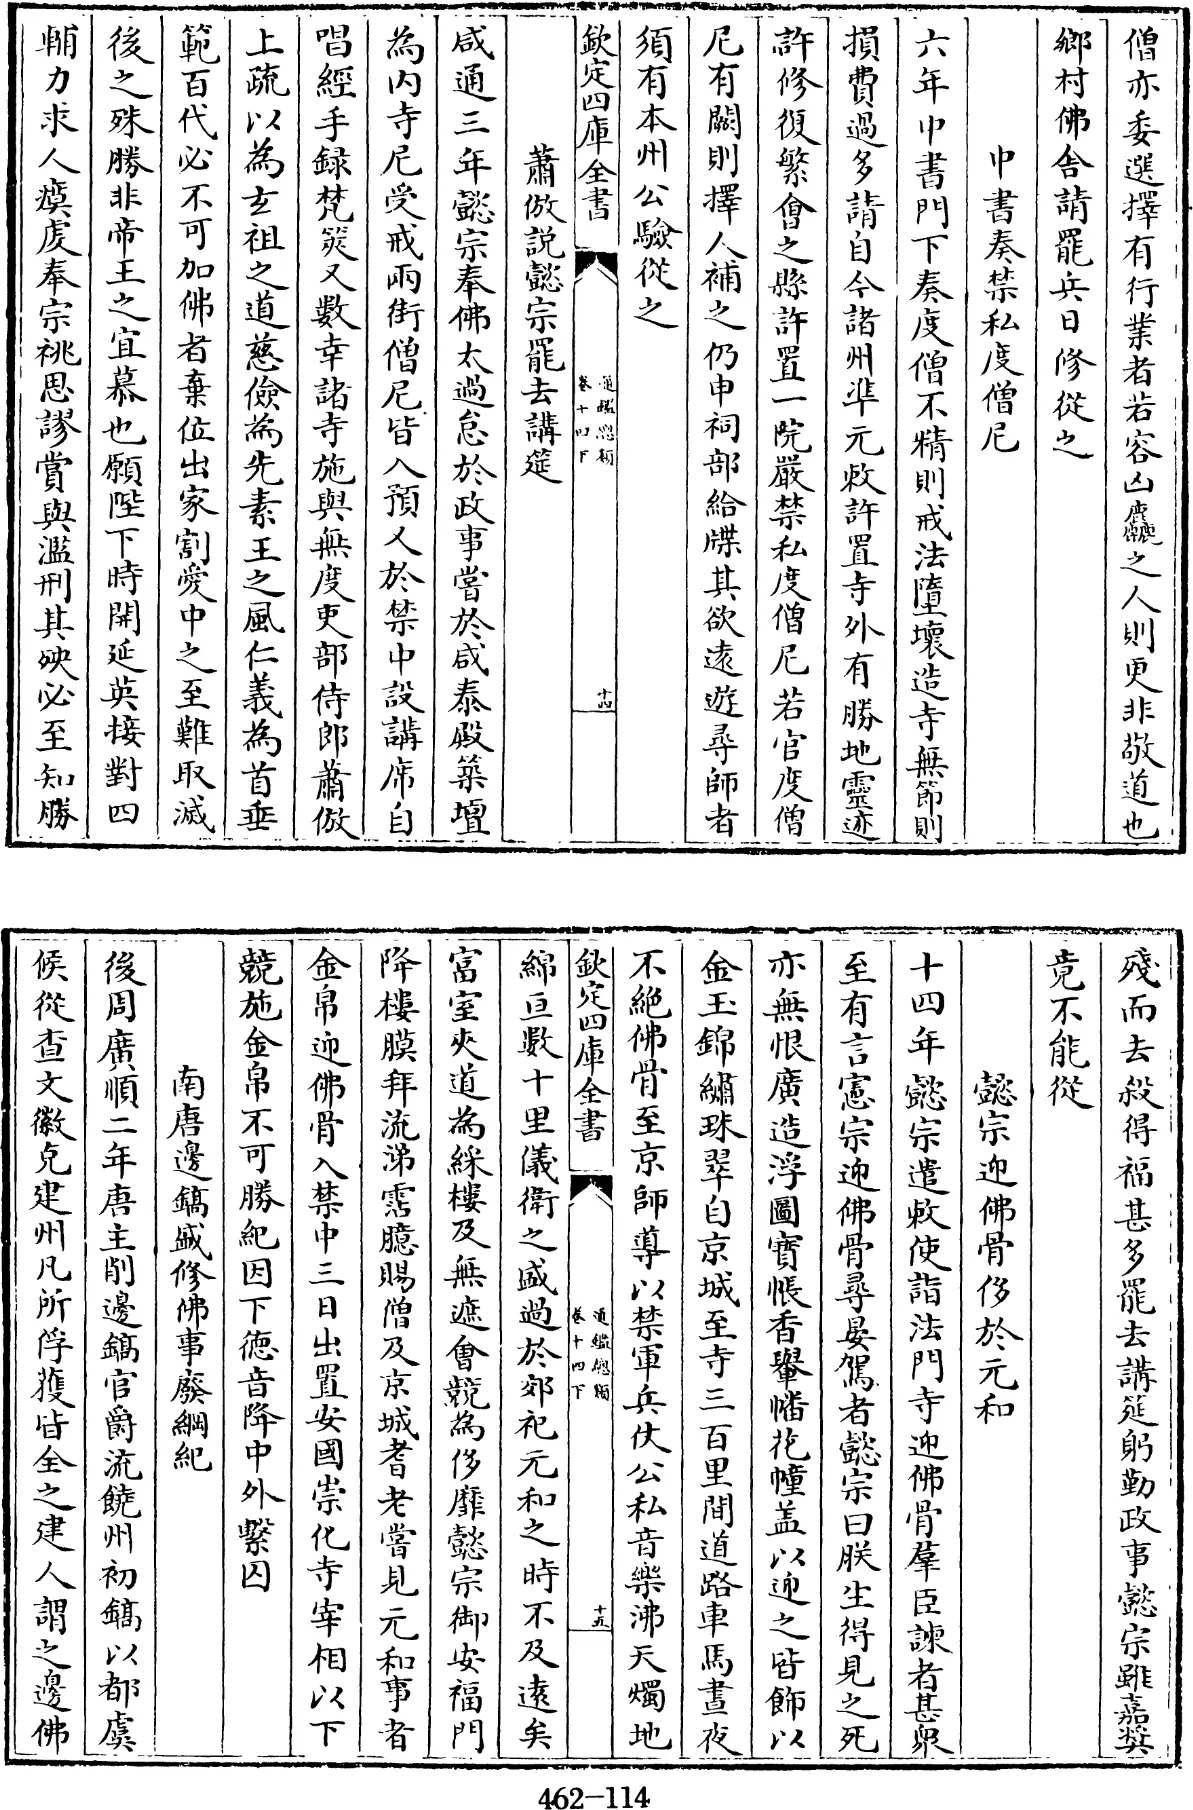 僧亦委選擇有行業者若容凶麤之人則更非敬道也
鄉村佛舎請罷兵日修從之
中書奏禁私度僧尼
六年中書門下奏度僧不精則戒法墮壞造寺無節則
損費過多請自今諸州凖元敕許置寺外有勝地靈迹
許修復繁㑹之縣許置一院嚴禁私度僧尼若官度僧
尼有闕則擇人補之仍申祠部給牒其欲逺遊尋師者
須有本州公驗從之
欽定四庫全書
通鑑總類
卷十四下
十四
蕭倣説懿宗罷去講筵
咸通三年懿宗奉佛太過怠於政事嘗於咸泰殿築壇
為内寺尼受戒兩街僧尼皆入預又於禁中設講席自
唱經手録梵筴又數幸諸寺施與無度吏部侍郎蕭倣
上疏以為玄祖之道慈儉為先素王之風仁義為首垂
範百代必不可加佛者棄位出家割愛中之至難取滅
後之殊勝非帝王之宜慕也願陛下時開延英接對四
輔力求人瘼䖍奉宗祧思謬賞與濫刑其殃必至知勝
殘而去殺得福甚多罷去講筵躬勤政事懿宗雖嘉奬
竟不能從
懿宗迎佛骨侈於元和
十四年懿宗遣敕使詣法門寺迎佛骨羣臣諫者甚衆
至有言憲宗迎佛骨尋晏駕者懿宗曰朕生得見之死
亦無恨廣造浮圖寳帳香轝幡花幢盖以迎之皆飾以
金玉錦繡珠翠自京城至寺三百里間道路車馬晝夜
不絶佛骨至京師導以禁軍兵仗公私音樂沸天燭地
欽定四庫全書
通鑑總類
卷十四下
十五
綿亘數十里儀衛之盛過於郊祀元和之時不及逺矣
富室夾道為綵樓及無遮㑹競為侈靡懿宗御安福門
降樓膜拜流涕霑臆賜僧及京城耆老嘗見元和事者
金帛迎佛骨入禁中三日出置安國崇化寺宰相以下
競施金帛不可勝紀因下德音降中外繫囚
南唐邊鎬盛修佛事廢綱紀
後周廣順二年唐主削邊鎬官爵流饒州初鎬以都虞
候從查文徽克建州凡所俘獲皆全之建人謂之邊佛
462-114